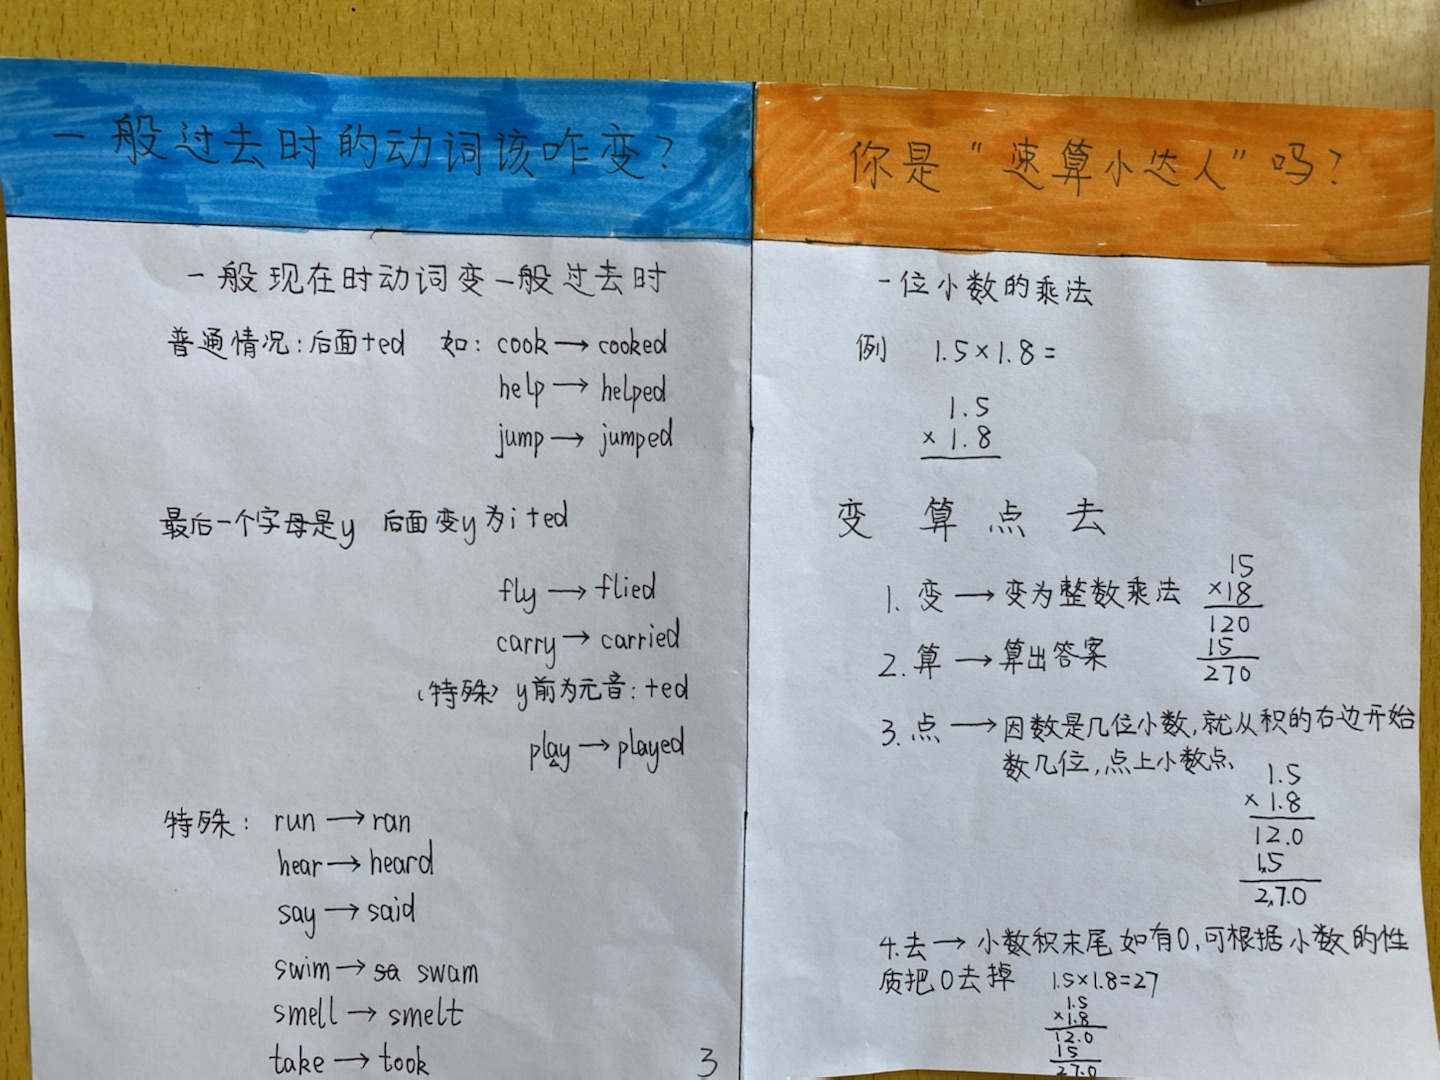 一般过去时的动词该咋变？
一般现在时动词变一般过去时
普通情况：后面+ed 如：cook→cooked
help→helped
jump→jumped
最后一个字母是y 后面变y为i+ed
fly→flied
carry→carried
（特殊）y前为元音：+ed
play→played
特殊：run→ran
hear→heard
say→said
swim→sa swam
smell→smelt
take→took
3
你是“速算小达人”吗？
一位小数的乘法
例 1.5×1.8=
1.5
×1.8
变 算 点 去
1. 变→变为整数乘法
15
×18
120
15
270
2. 算→算出答案
3. 点→因数是几位小数，就从积的右边开始
数几位，点上小数点
1.5
×1.8
12.0
1.5
2.7.0
4. 去→小数积末尾如有0，可根据小数的性
质把0去掉 1.5×1.8=27
1.5
×1.8
12.0
15
27.0